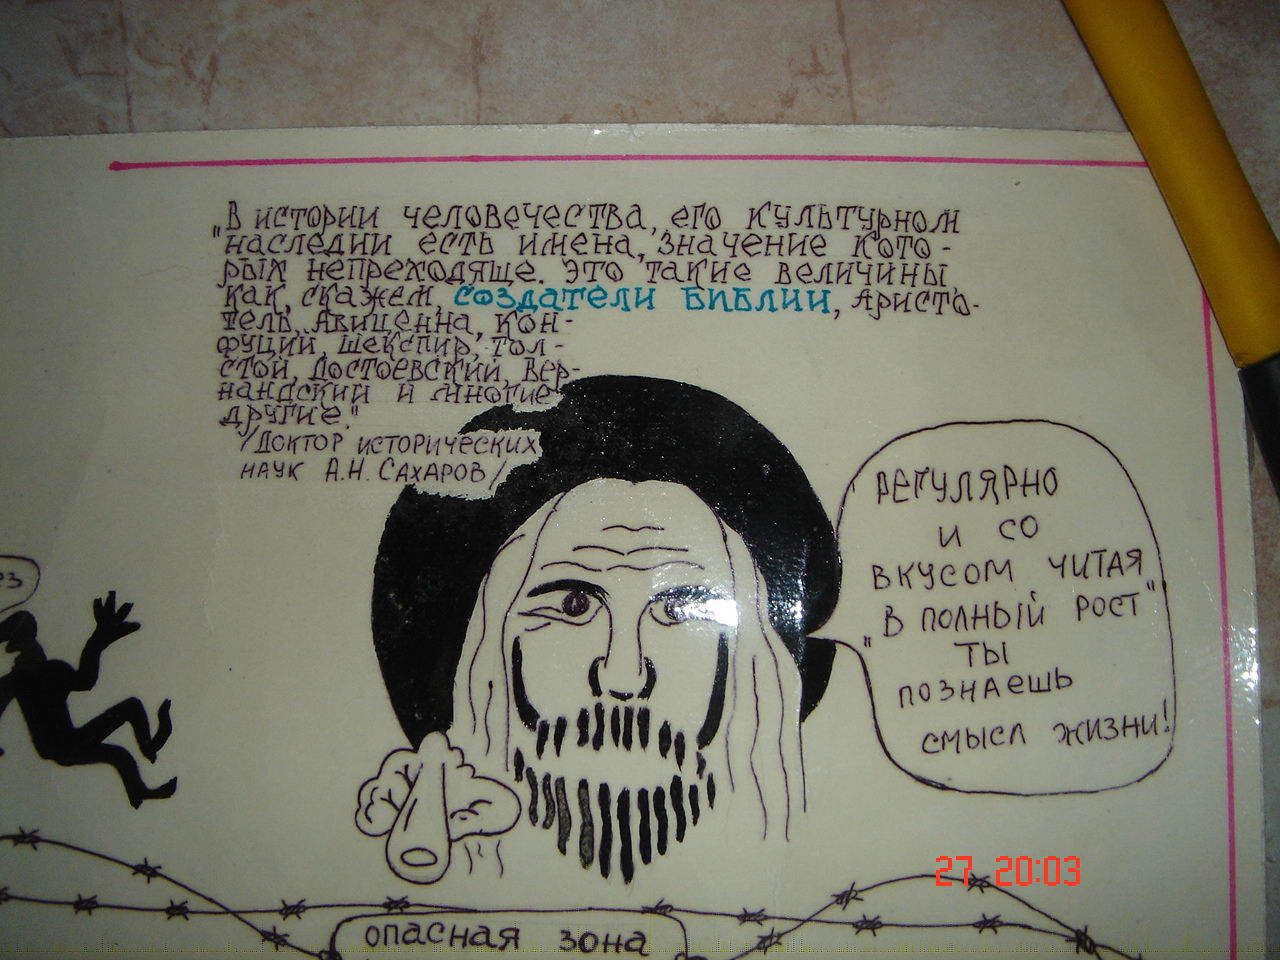 "В истории человечества, его культурном
наследии есть имена, значение кото-
рых непреходяще. Это такие величины
как, скажем, создатели Библии, Аристо-
тель, Авиценна, Кон-
фуций, Шекспир, Тол-
стой, Достоевский, Вер-
надский и многие
другие."
/Доктор исторических
наук А.Н. Сахаров/
РЕГУЛЯРНО
И СО
ВКУСОМ ЧИТАЯ
"В ПОЛНЫЙ РОСТ"
ТЫ
ПОЗНАЕШЬ
СМЫСЛ ЖИЗНИ!
ОПАСНАЯ ЗОНА
27 20:03